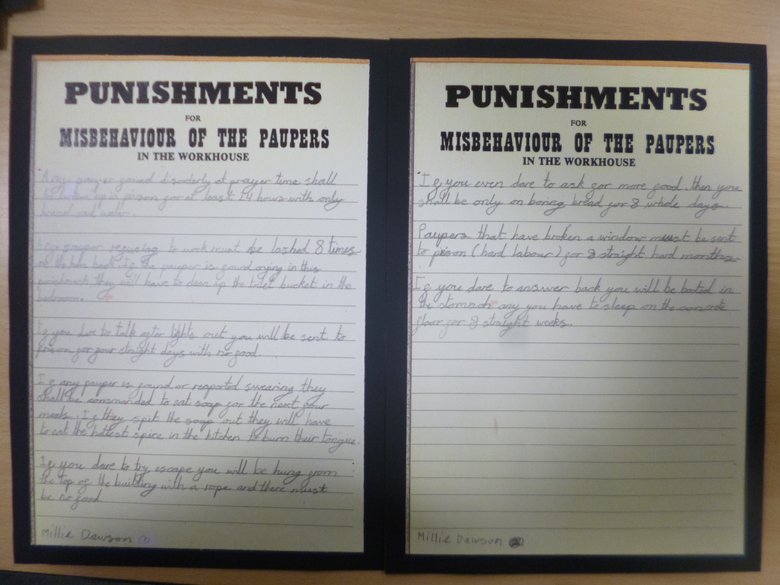 PUNISHMENTS
FOR
MISBEHAVIOUR OF THE PAUPERS
IN THE WORKHOUSE
Any pauper found disorderly at prayer time shall
be up in prison for at least 24 hours with only
bread and water.
Any pauper refusing to work must be lashed 8 times
on the back. If the pauper is found crying in this
punishment they will have to clean up the toilet bucket in the
bedrooms.
If you dare to talk after lights out you will be sent to
prison for four straight days with no food.
If any pauper is found or reaported swearing they
shall be commanded to eat soap for the next four
meals. If they spit the soap out they will have
to eat the hottest spice in the kitchen to burn their tongue.
If you dare to try escape you will be hung from
the top of the building with a rope and there must
be no food.
Millie Dawson
PUNISHMENTS
FOR
MISBEHAVIOUR OF THE PAUPERS
IN THE WORKHOUSE
If you even dare to ask for more food then you
shall be only on boring bread for 8 whole days.
Paupers that have broken a window must be sent
to prison (hard labour) for 8 straight hard months.
If you dare to answer back you will be booted in
the stomach any you have to sleep on the concrete
floor for 8 straight weeks.
Millie Dawson